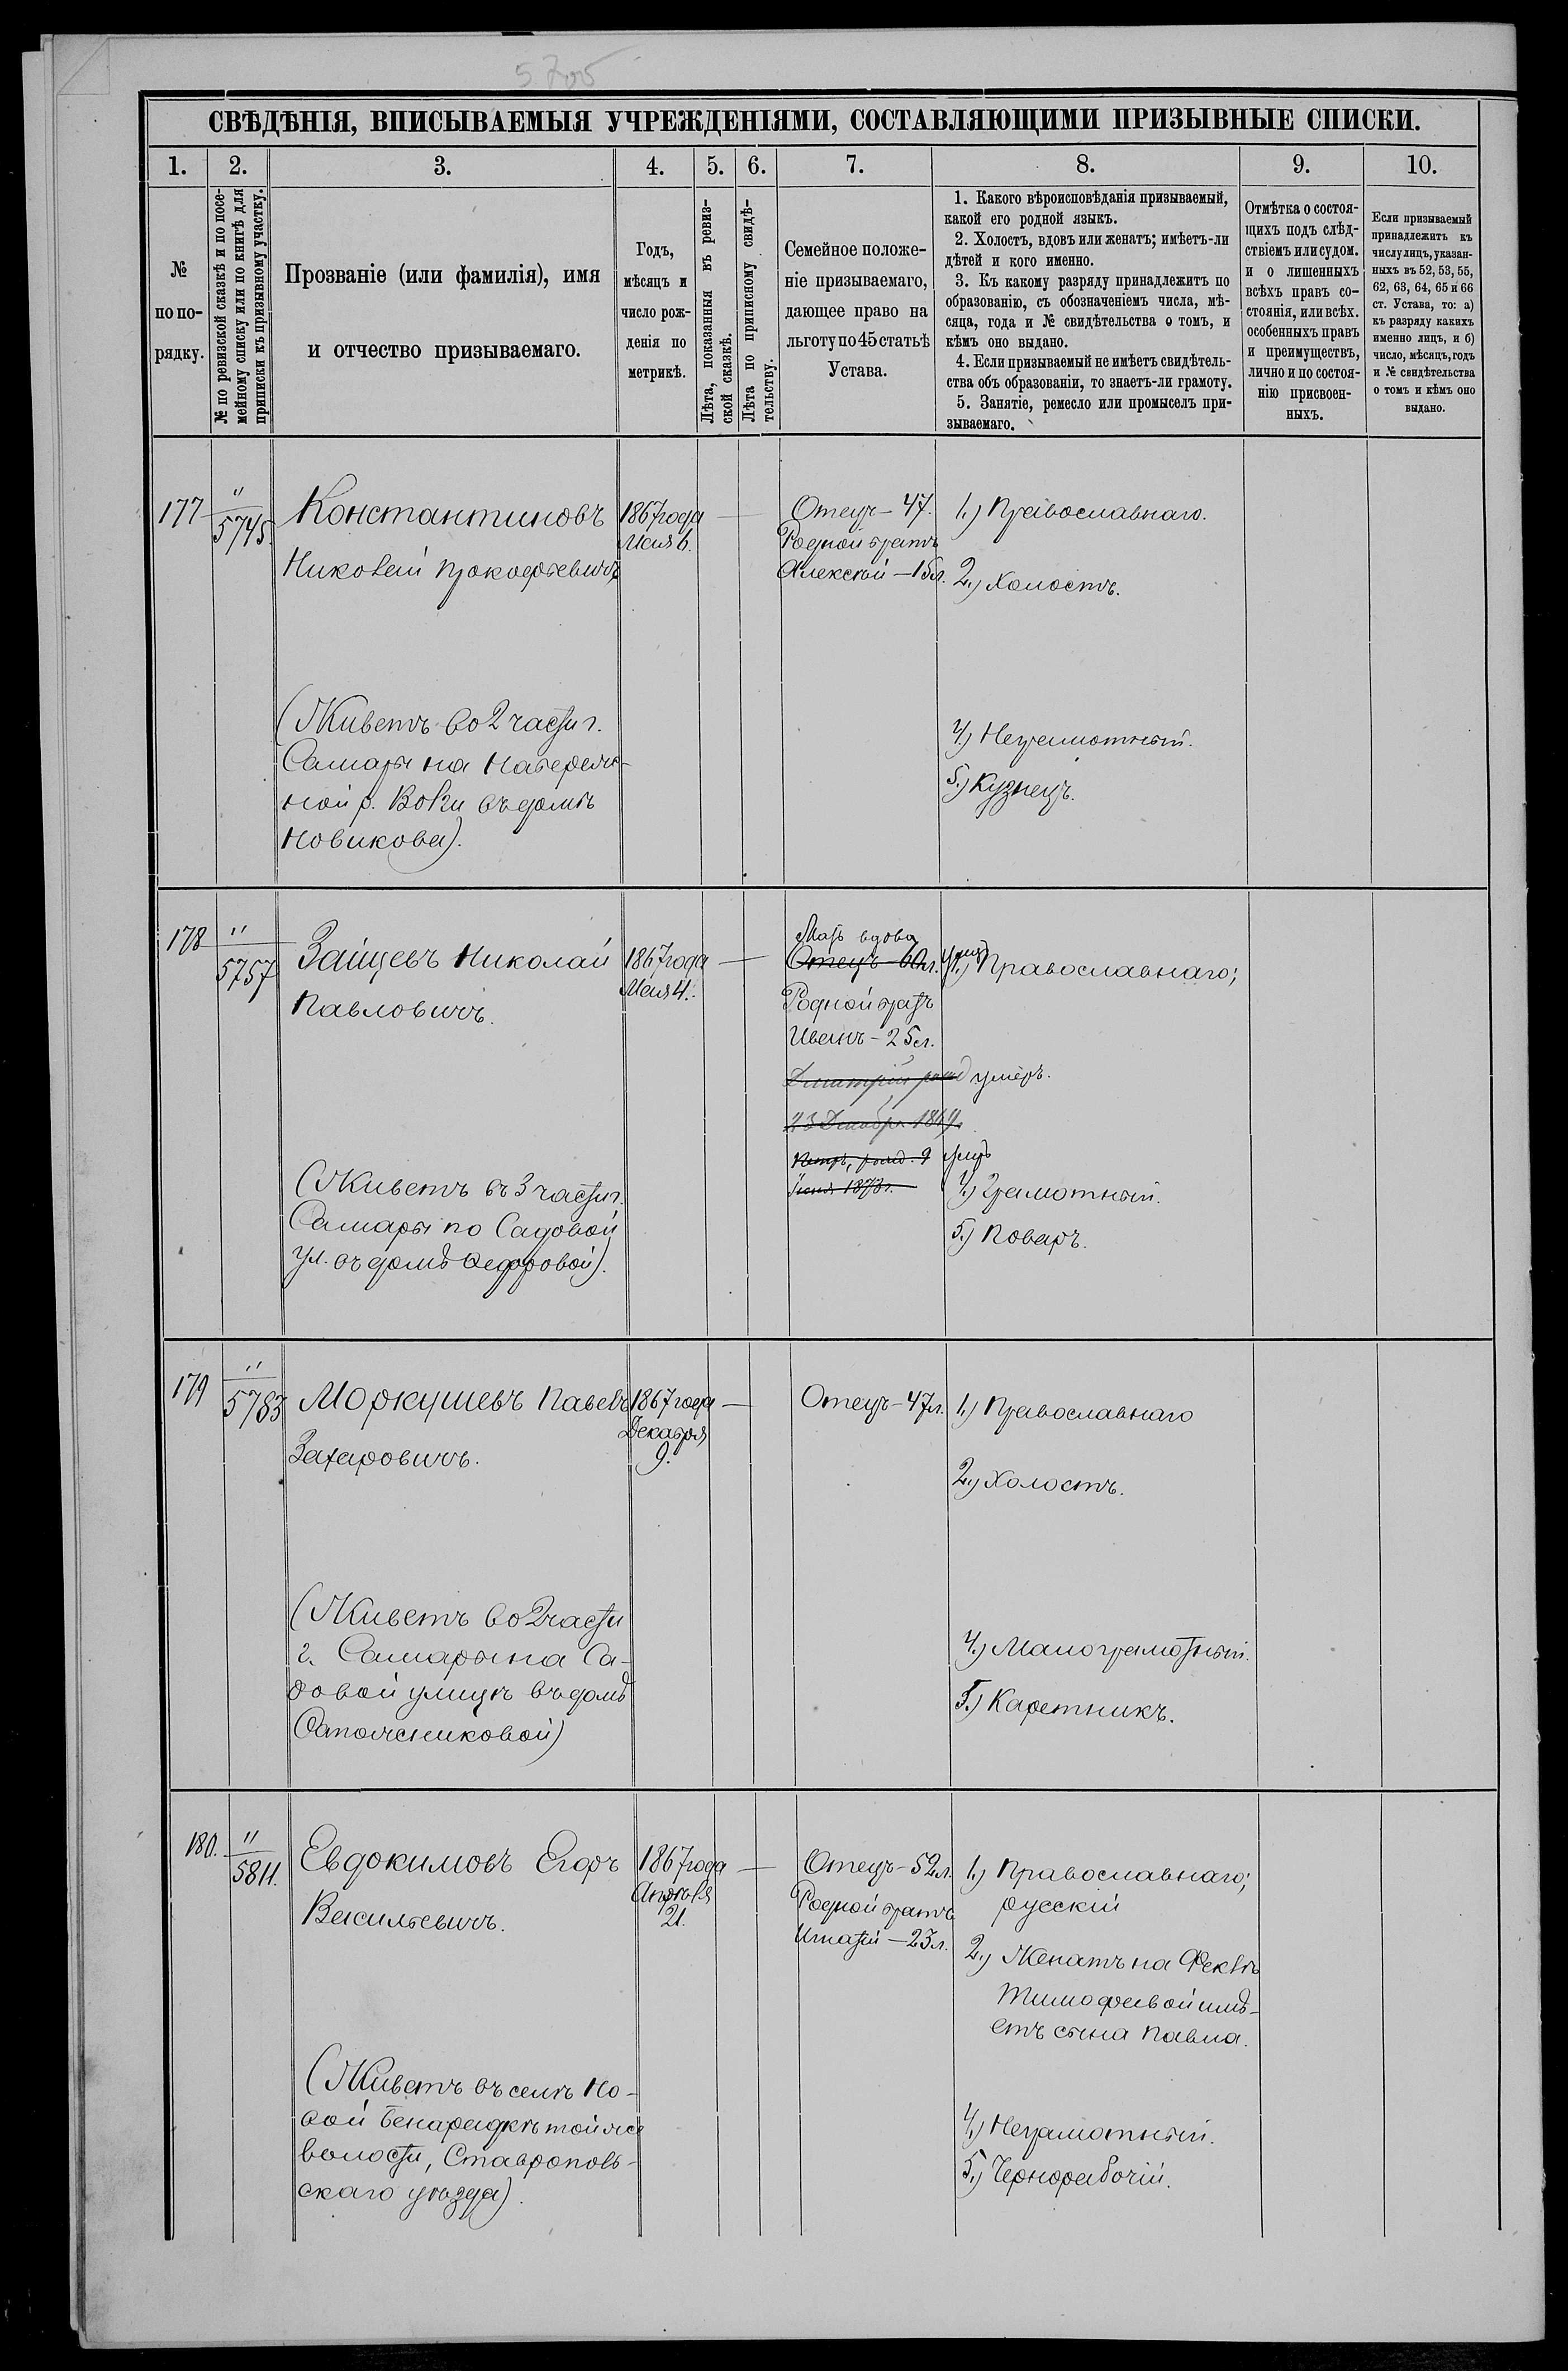 СВѢДѢНІЯ, ВПИСЫВАЕМЫЯ УЧРЕЖДЕНІЯМИ, СОСТАВЛЯЮЩИМИ ПРИЗЫВНЫЕ СПИСКИ.
1. 2. 3. 4. 5. 6. 7. 8. 9. 10.
№
по по-
рядку.
№ по ревизской сказкѣ и по посе-
мейному списку или по книгѣ для
приписки къ призывному участку.
Прозваніе (или фамилія), имя
и отчество призываемаго.
Годъ,
мѣсяцъ и
число рож-
денія по
метрикѣ.
Лѣта, показанныя въ ревиз-
ской сказкѣ.
Лѣта по приписному свидѣ-
тельству.
Семейное положе-
ніе призываемаго,
дающее право на
льготу по 45 статьѣ
Устава.
1. Какого вѣроисповѣданія призываемый,
какой его родной языкъ.
2. Холостъ, вдовъ или женатъ; имѣетъ-ли
дѣтей и кого именно.
3. Къ какому разряду принадлежитъ по
образованію, съ обозначеніемъ числа, мѣ-
сяца, года и № свидѣтельства о томъ, и
кѣмъ оно выдано.
4. Если призываемый не имѣетъ свидѣтель-
ства объ образованіи, то знаетъ-ли грамоту.
5. Занятіе, ремесло или промыселъ при-
зываемаго.
Отмѣтка о состоя-
щихъ подъ слѣд-
ствіемъ или судом.
и о лишенныхъ
всѣхъ правъ со-
стоянія, или всѣх.
особенныхъ правъ
и преимуществъ,
лично и по состоя-
нію присвоен-
ныхъ.
Если призываемый
принадлежитъ къ
числу лицъ, указан-
ныхъ въ 52, 53, 55,
62, 63, 64, 65 и 66
ст. Устава, то: а)
къ разряду какихъ
именно лицъ, и б)
число, мѣсяцъ, годъ
и № свидѣтельства
о томъ и кѣмъ оно
выдано.
177
"
5745.
Константиновъ
Николай Прокофьевичъ
(Живетъ во 2 части г.
Самары на Набереж-
ной р. Волги въ домѣ
Новикова).
1867 года
Мая 6.
—
Отецъ - 47.
Родной братъ
Алексѣй - 15 л.
1.) Православнаго.
2.) Холостъ.
4.) Неграмотный.
5.) Кузнецъ.
178
"
5757
Зайцевъ Николай
Павловичъ.
(Живетъ въ 3 части г.
Самары по Садовой
ул. въ домѣ Федоровой).
1867 года
Мая 4.
—
Мать вдова
Отецъ - 60 л.
Родной братъ
Иванъ - 25 л.
Дмитрій умеръ.
23 Декабря
Петръ, рожд. 9
Іюня 1873 г.
1.) Православнаго;
4.) Грамотный.
5.) Поваръ.
179
"
5783
Моркушевъ Павелъ
Захаровичъ.
(Живетъ во 2 части
г. Самары на Са-
довой улицѣ въ домѣ
Сапожниковой)
1867 года
Декабря
9.
—
Отецъ - 47 л.
1.) Православнаго
2.) Холостъ.
4.) Малограмотный.
5.) Каретникъ.
180.
"
5811.
Евдокимовъ Егоръ
Васильевичъ.
(Живетъ въ селѣ Но-
вой Бинарадкѣ той же
волости, Ставрополь-
скаго уѣзда).
1867 года
Апрѣля
21.
—
Отецъ - 52 л.
Родной братъ
Игнатій - 23 л.
1.) Православнаго;
русскій
2.) Женатъ на Феклѣ
Тимофеевой имѣ-
етъ сына Павла.
4.) Неграмотный.
5.) Чернорабочій.